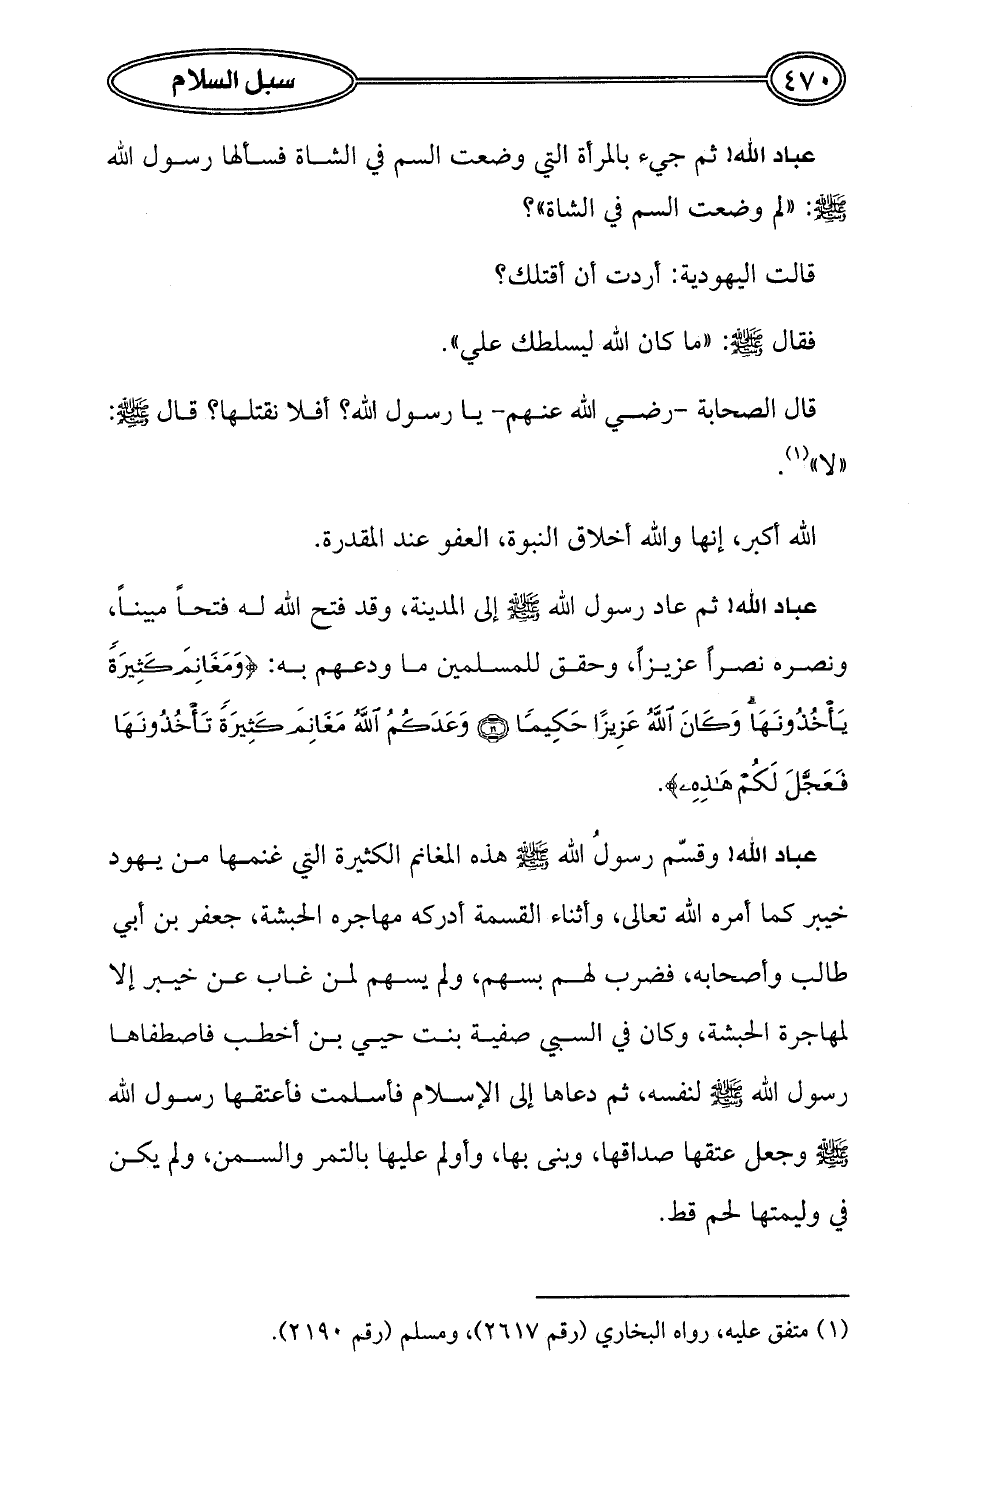 سبل السلام ٤٧٠
عباد الله! ثم جيء بالمرأة التي وضعت السم في الشاة فسألها رسول الله
ﷺ: «لم وضعت السم في الشاة»؟
قالت اليهودية: أردت أن أقتلك؟
فقال ﷺ: «ما كان الله ليسلطك علي».
قال الصحابة -رضي الله عنهم- يا رسول الله؟ أفلا نقتلها؟ قال ﷺ:
«لا»(١).
الله أكبر، إنها والله أخلاق النبوة، العفو عند المقدرة.
عباد الله! ثم عاد رسول الله ﷺ إلى المدينة، وقد فتح الله له فتحاً مبيناً،
ونصره نصراً عزيزاً، وحقق للمسلمين ما ودعهم به: ﴿وَمَغَانِمَ كَثِيرَةً
يَأْخُذُونَهَا ۗ وَكَانَ ٱللَّهُ عَزِيزًا حَكِيمًا ۝١٩ وَعَدَكُمُ ٱللَّهُ مَغَانِمَ كَثِيرَةً تَأْخُذُونَهَا
فَعَجَّلَ لَكُمْ هَـٰذِهِۦ﴾.
عباد الله! وقسّم رسولُ الله ﷺ هذه المغانم الكثيرة التي غنمها من يهود
خيبر كما أمره الله تعالى، وأثناء القسمة أدركه مهاجره الحبشة، جعفر بن أبي
طالب وأصحابه، فضرب لهم بسهم، ولم يسهم لمن غاب عن خيبر إلا
لمهاجرة الحبشة، وكان في السبي صفية بنت حيي بن أخطب فاصطفاها
رسول الله ﷺ لنفسه، ثم دعاها إلى الإسلام فأسلمت فأعتقها رسول الله
ﷺ وجعل عتقها صداقها، وبنى بها، وأولم عليها بالتمر والسمن، ولم يكن
في وليمتها لحم قط.
(١) متفق عليه، رواه البخاري (رقم ٢٦١٧)، ومسلم (رقم ٢١٩٠).